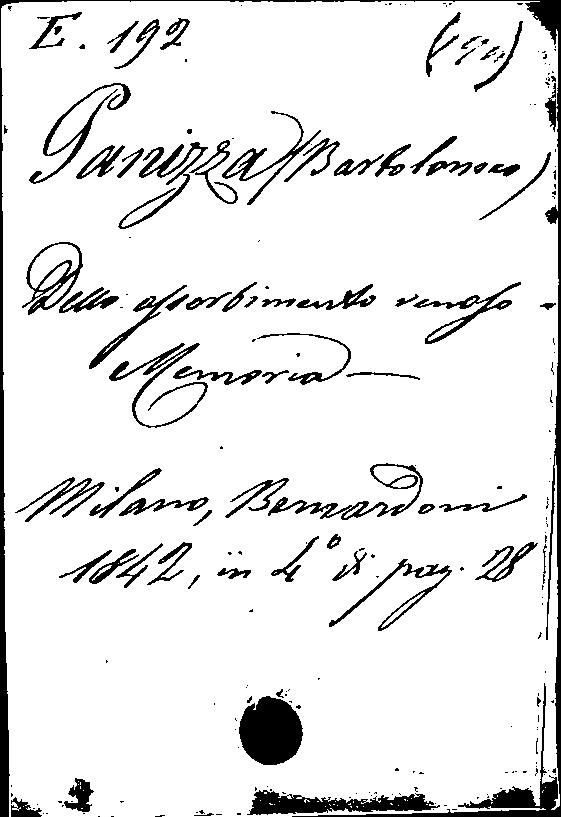 E. 192
Panizza (Bartolomeo)
Dello assorbimento venoso -
Memoria —
Milano, Bernardoni
1842, in 4° di pag. 28